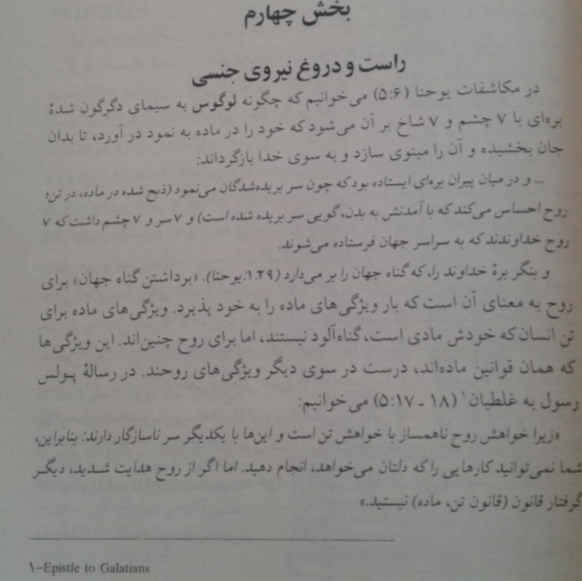 بخش چهارم
راست و دروغ نیروی جنسی
در مکاشفات یوحنا (۵:۶) می‌خوانیم که چگونه لوگوس به سیمای دگرگون شدهٔ
بره‌ای با ۷ چشم و ۷ شاخ بر آن می‌شود که خود را در ماده به نمود در آورد، تا بدان
جان بخشیده و آن را مینوی سازد و به سوی خدا بازگرداند:
... و در میان پیران بره‌ای ایستاده بود که چون سر بریده‌شدگان می‌نمود (ذبح شده در ماده، در تن؛
روح احساس می‌کند که با آمدنش به بدن، گویی سر بریده شده است) و ۷ سر و ۷ چشم داشت که ۷
روح خداوندند که به سراسر جهان فرستاده می‌شوند.
و بنگر برهٔ خداوند را، که گناه جهان را بر می‌دارد (۱.۲۹:یوحنا). «برداشتن گناه جهان» برای
روح به معنای آن است که بار ویژگی‌های ماده را به خود پذیرد. ویژگی‌های ماده برای
تن انسان که خودش مادی است، گناه‌آلود نیستند، اما برای روح چنین‌اند. این ویژگی‌ها
که همان قوانین ماده‌اند، درست در سوی دیگر ویژگی‌های روحند. در رسالهٔ پولس
رسول به غلطیان۱ (۱۸ ـ ۵:۱۷) می‌خوانیم:
«زیرا خواهش روح ناهمساز با خواهش تن است و این‌ها با یکدیگر سر ناسازگار دارند: بنابراین،
شما نمی‌توانید کارهایی را که دلتان می‌خواهد، انجام دهید. اما اگر از روح هدایت شدید، دیگر
گرفتار قانون (قانون تن، ماده) نیستید.»
۱-Epistle to Galatians